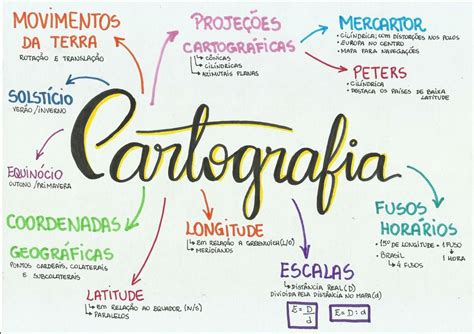 MOVIMENTOS
DA TERRA
ROTAÇÃO E TRANSLAÇÃO
SOLSTÍCIO
VERÃO/INVERNO
EQUINÓCIO
OUTONO/PRIMAVERA
COORDENADAS
GEOGRÁFICAS
PONTOS CARDEAIS, COLATERAIS
E SUBCOLATERAIS
LATITUDE
EM RELAÇÃO AO EQUADOR (N/S)
PARALELOS
PROJEÇÕES
CARTOGRÁFICAS
CÔNICAS
CILÍNDRICAS
AZIMUTAIS PLANAS
MERCARTOR
• CILÍNDRICA; COM DISTORÇÕES NOS POLOS
• EUROPA NO CENTRO
• MAPA PARA NAVEGAÇÕES
PETERS
• CILÍNDRICA
• DOSTACA OS PAÍSES DE BAIXA
LATITUDE
Cartografia
LONGITUDE
EM RELAÇÃO A GREENWICH (L/O)
MERIDIANOS
ESCALAS
DISTÂNCIA REAL (D)
DIVIDIDA PELA DISTÂNCIA NO MAPA (d)
E = D
d
E = D : d
FUSOS
HORÁRIOS
• 15º DE LONGITUDE = 1 FUSO
1 HORA
• BRASIL
4 FUSOS